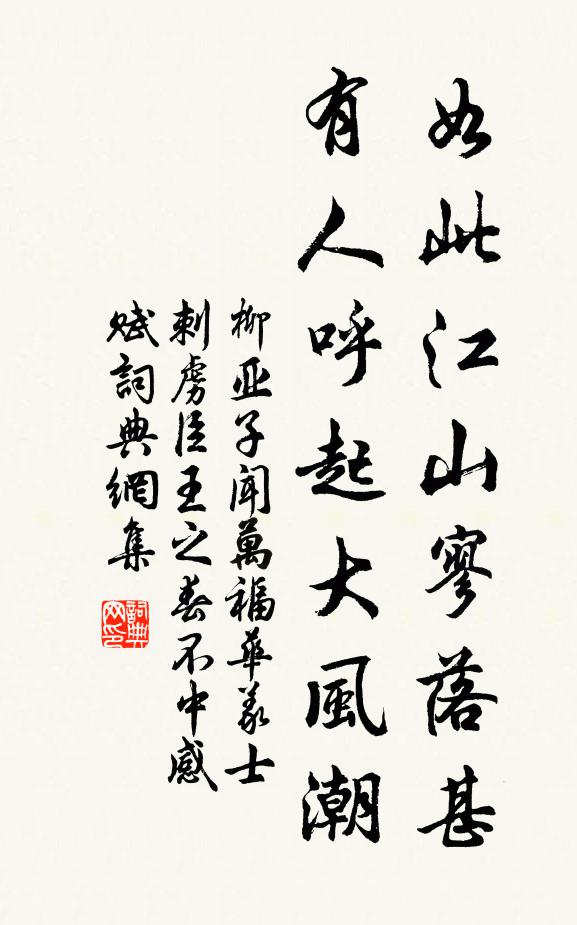 如此江山寥落甚
有人呼起大風潮
柳亚子聞萬福華義士
刺虜臣王之春不中感
賦詞典網集
詞典网印